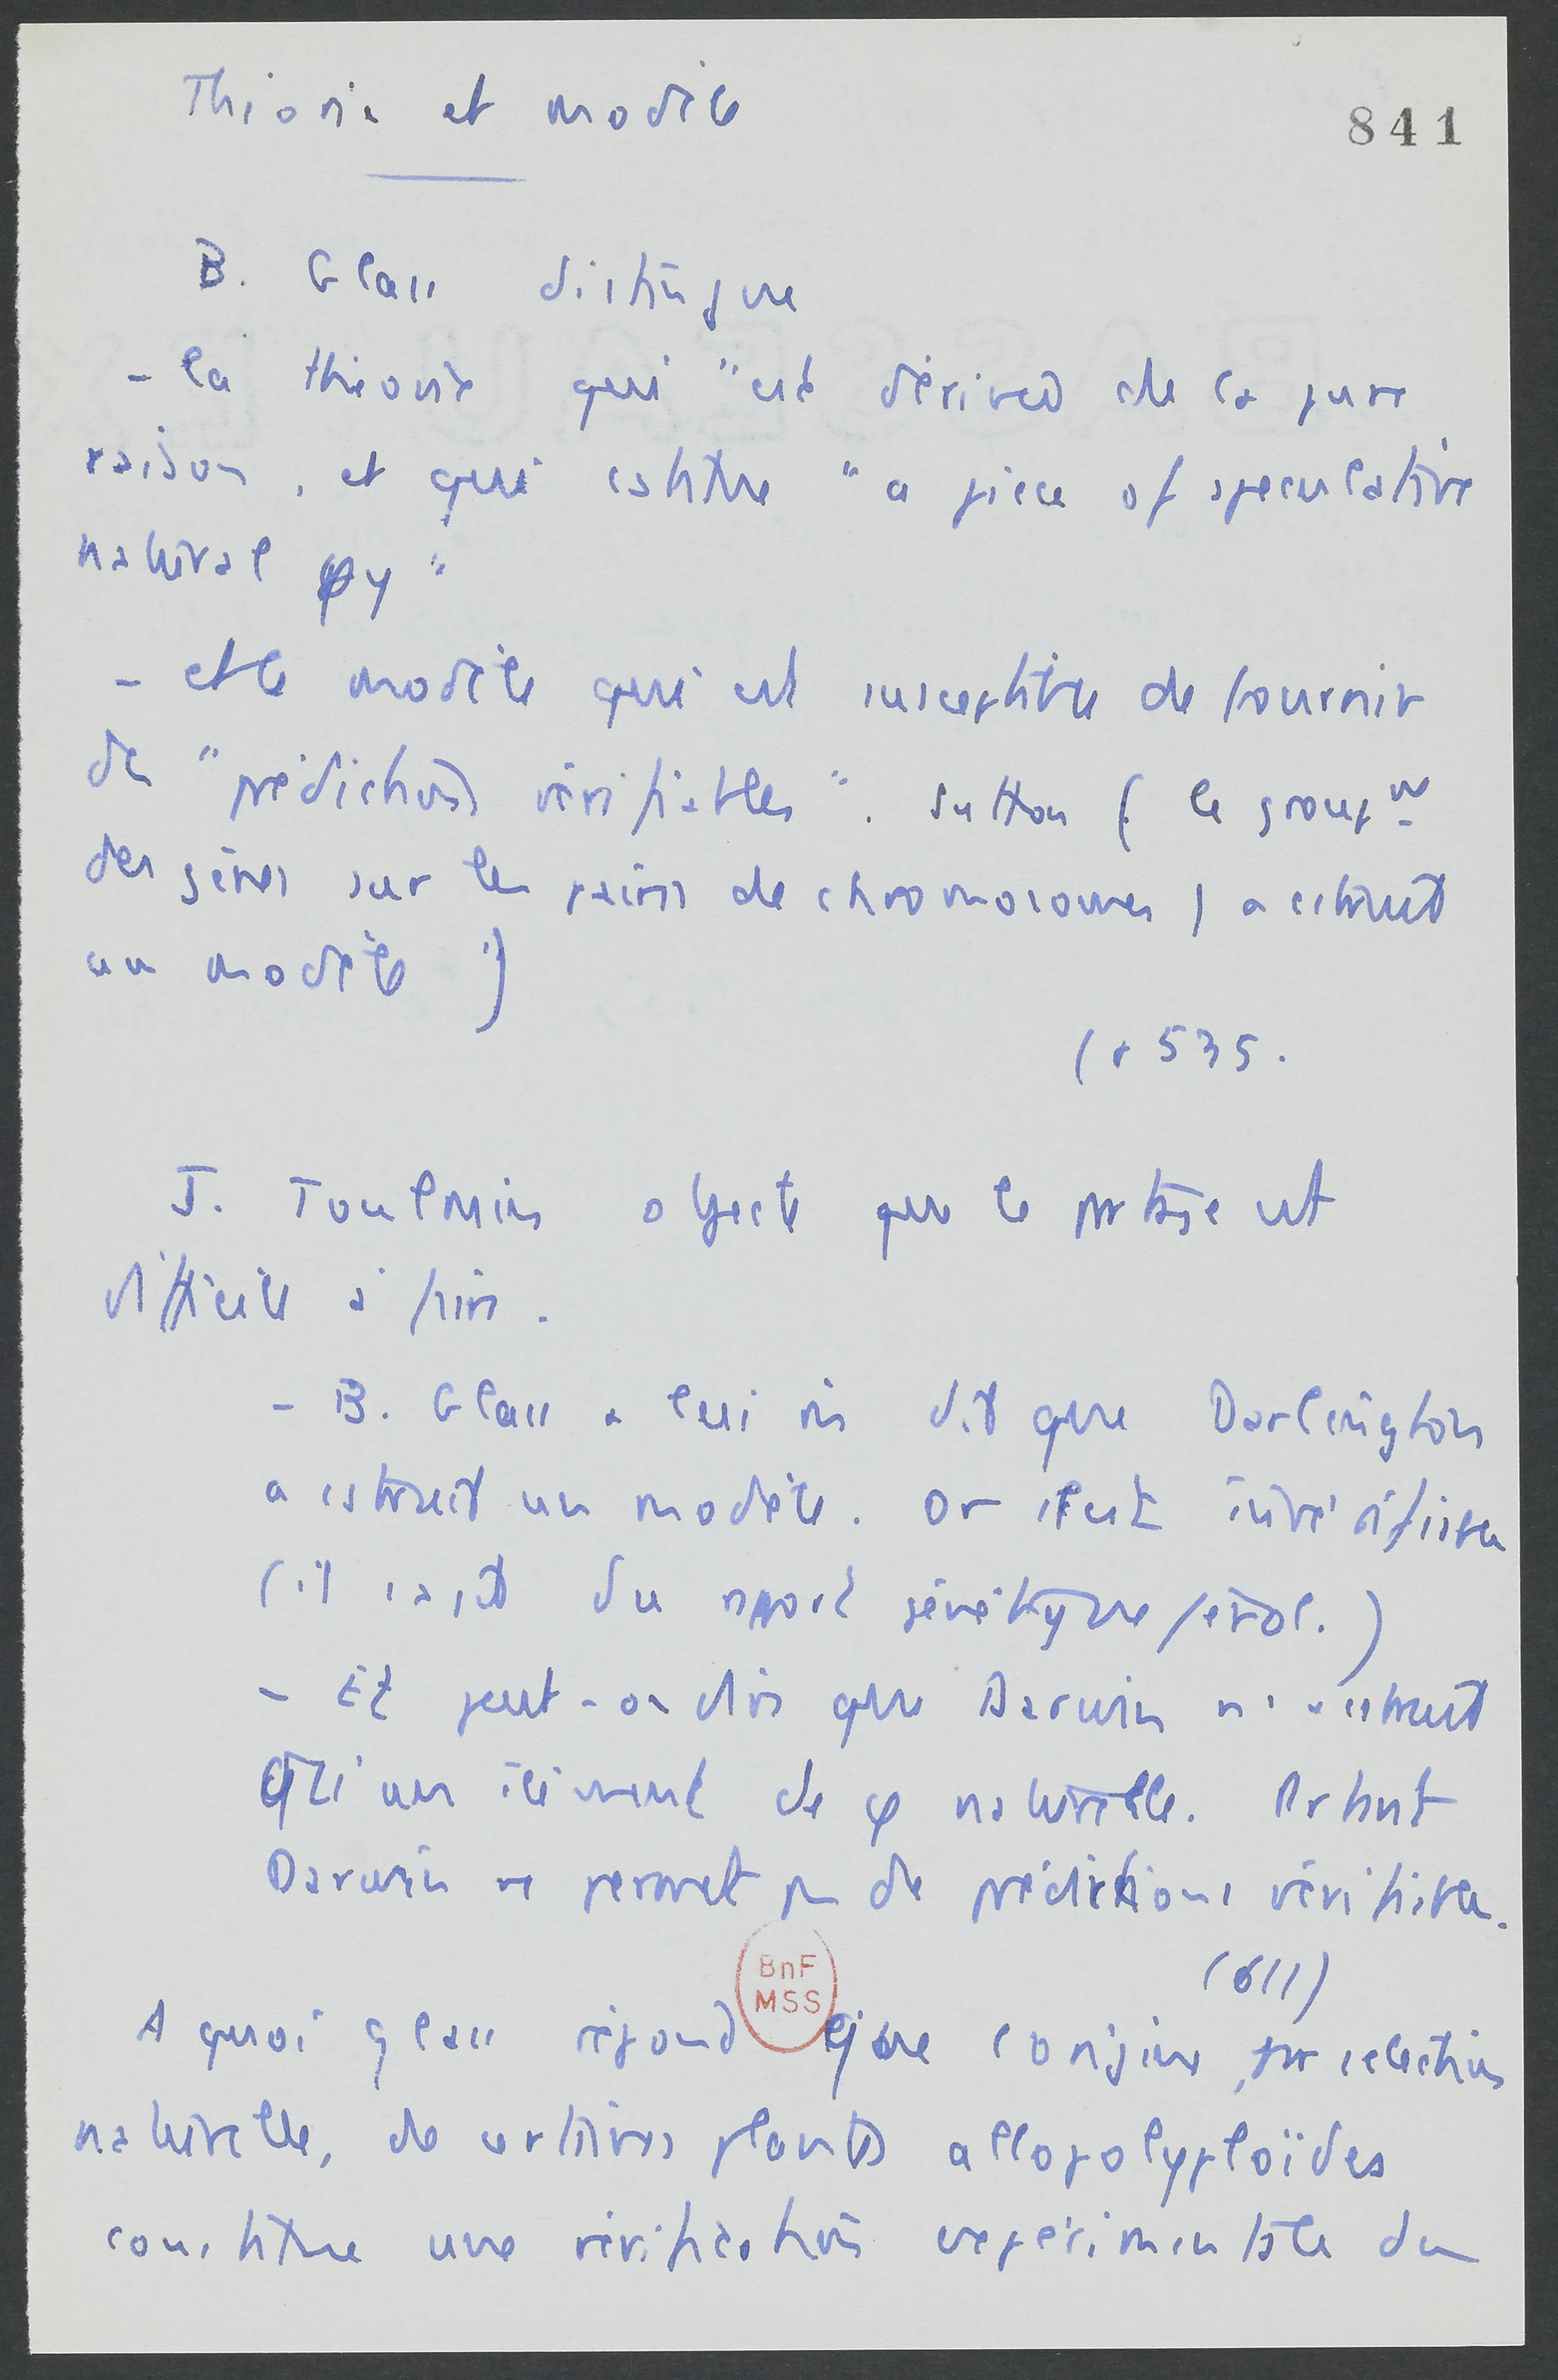 Théorie et modèle
841
B. Glass distingue
- la théorie qui "est dérived de la pure
raison, et qui cstitue "a piece of speculative
natural φy"
- et le modèle qui est susceptible de fournir
des "prédictions vérifiables". Sutton (le groupt
des gènes sur les paires de chromosomes) a cstruit
un modèle)
535.
J. Toulmin objecte que le partage est
difficile à faire.
- B. Glass a lui m dit que Darlington
a cstruit un modèle. Or il est invérifiable
(il s'agit du rapport génétique/évol.)
- Et peut-on dire que Darwin n'a cstruit
qu'un élément de φ naturelle. Partant
Darwin ne permet pas de prédictions vérifiables.
(611)
A quoi Glass répond que l'origine, par sélection
naturelle, de certaines plantes allopolyploïdes
constitue une vérification expérimentale du
BnF
MSS